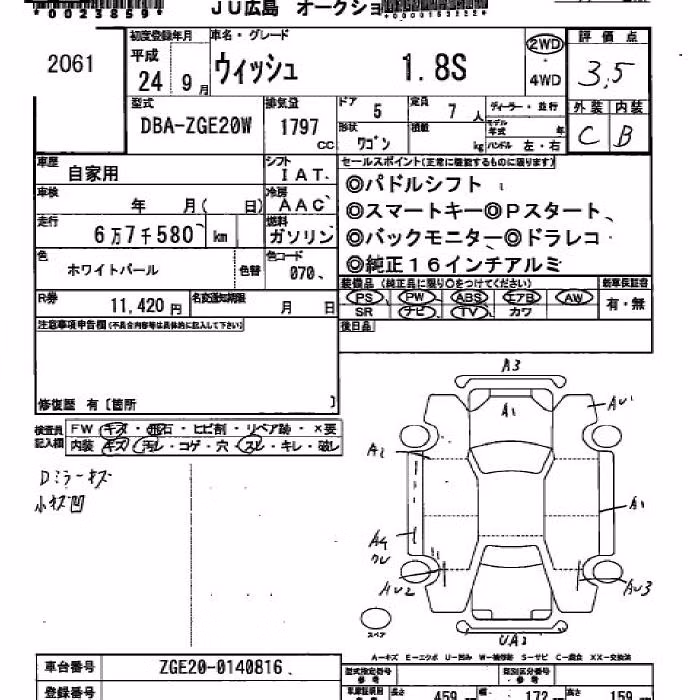 *0023859*
JU広島 オークショ
2061
初度登録年月 車名・グレード
平成
24 9月 ウィッシュ 1.8S
2WD
4WD
評価点
3,5
外装 内装
C B
型式 排気量
DBA-ZGE20W 1797 cc
ドア 5 定員 7人 ディーラー・並行
形状 ワゴン 積載 kg モデル年式 年
ハンドル 左・右
車歴 自家用 シフト IAT
車検 年 月( 日) 冷房 AAC
走行 6万7千580 km 燃料 ガソリン
色 ホワイトパール 色替 色コード 070
R券 11,420円 名変通知期限 月 日
セールスポイント(正常に機能するものに限ります)
◎パドルシフト
◎スマートキー◎Pスタート
◎バックモニター◎ドラレコ
◎純正16インチアルミ
装備品(純正品に限り○をつけてください) 新車保証書
PS PW ABS エアB AW 有・無
SR ナビ TV カワ
後日品
注意事項申告欄(不具合内容等は具体的に記入して下さい)
修復歴 有〔箇所 〕
検査員記入欄
FW キズ・飛石・ヒビ割・リペア跡・×要
内装 キズ・汚レ・コゲ・穴・スレ・キレ・破レ
Dミラーキズ
小キズ凹
A3
A1
AU1
A2
A1
A4
AU2
AU3
UA3
スペア
A-キズ E-エクボ U-凹み W-補修跡 S-サビ C-腐食 XX-交換済
車台番号 ZGE20-0140816
登録番号
型式指定番号 参考 類別区分番号 参考
長さ 459 幅 172 高さ 159